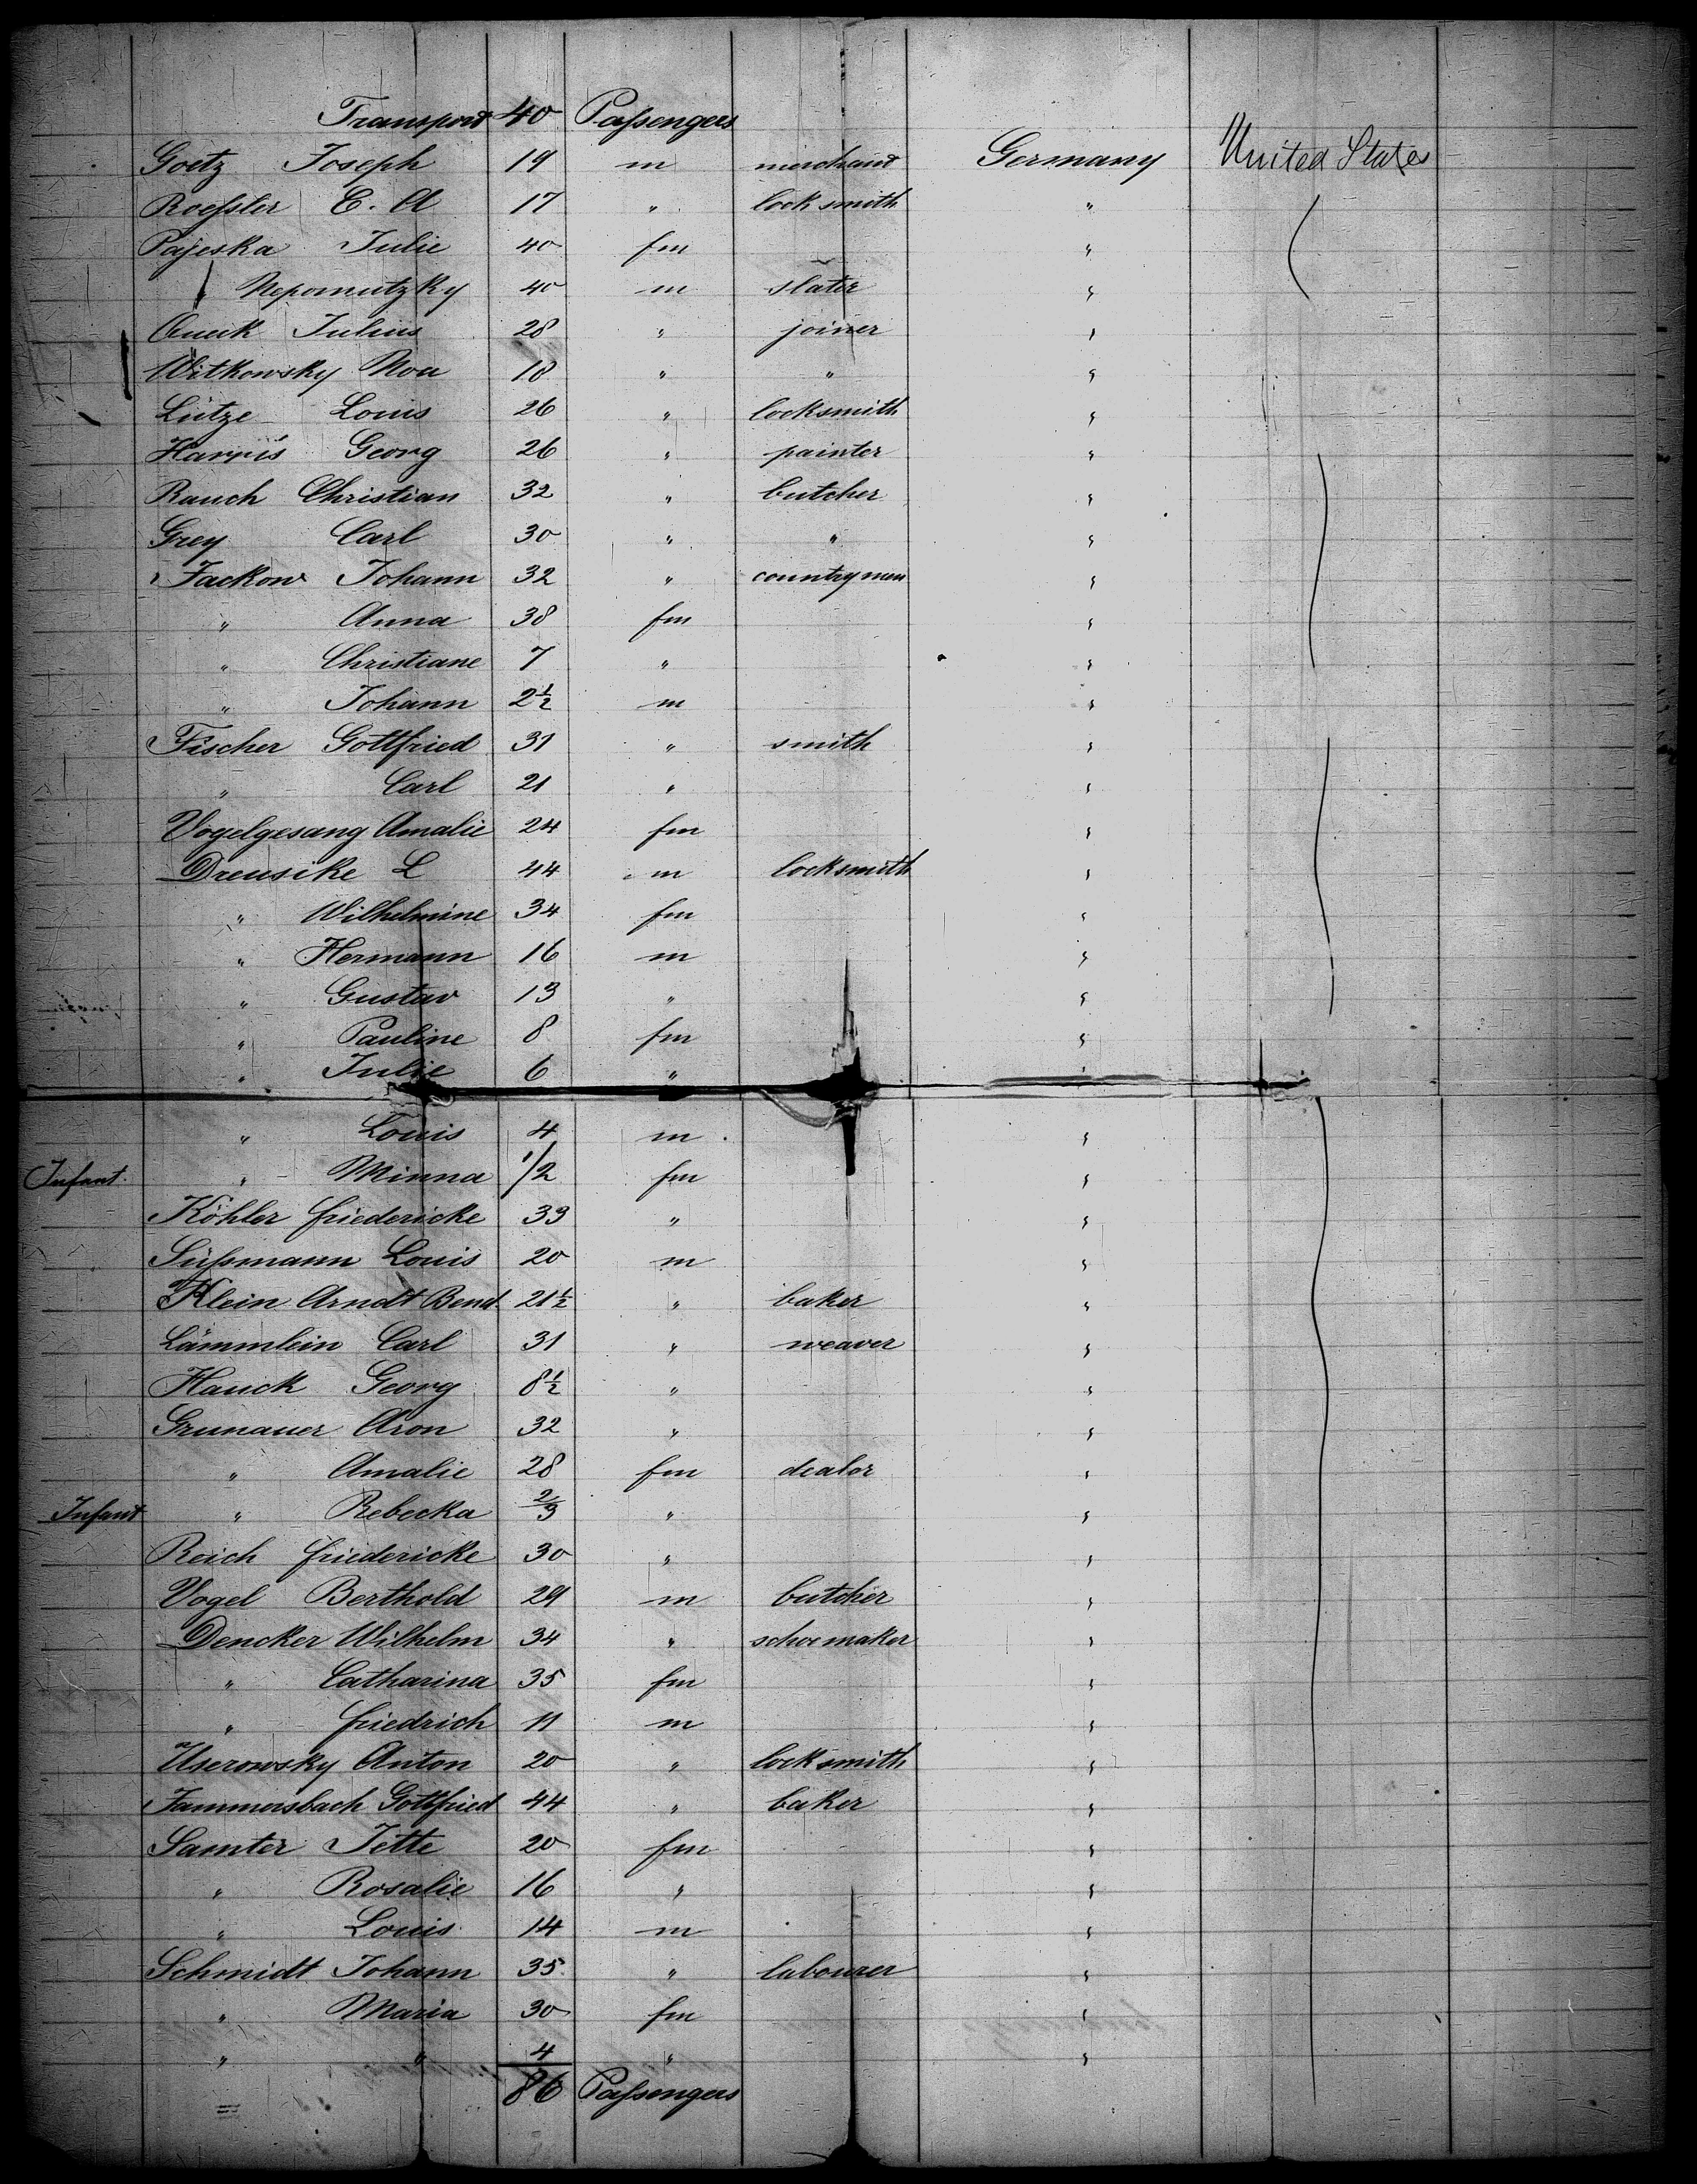 Transport 40 Passengers
Goetz Joseph 19 m merchant Germany United States
Roessler E. A 17 " locksmith "
Pajeska Julie 40 fm "
" Nepomutzky 40 m slater "
Queck Julius 28 " joiner "
Witkowsky Noa 18 " " "
Lütze Louis 26 " locksmith "
Harris Georg 26 " painter "
Rauch Christian 32 " butcher "
Grey Carl 30 " " "
Jackow Johann 32 " countrymen "
" Anna 38 fm "
" Christiane 7 " "
" Johann 2½ m "
Fischer Gottfried 31 " smith "
" Carl 21 " "
Vogelgesang Amalie 24 fm "
Dreusike L 44 m locksmith "
" Wilhelmine 34 fm "
" Hermann 16 m "
" Gustav 13 " "
" Pauline 8 fm "
" Julie 6 " "
" Louis 4 m "
Infant " Minna 1/2 fm "
Köhler Friedericke 33 " "
Süssmann Louis 20 m "
Klein Arndt Bend 21½ " baker "
Lämmlein Carl 31 " weaver "
Hauck Georg 8½ " "
Grunauer Aron 32 " "
" Amalie 28 fm dealer "
Infant " Rebecka 2/3 " "
Reich Friedericke 30 " "
Vogel Berthold 29 m butcher "
Dencker Wilhelm 34 " schoemaker "
" Catharina 35 fm "
" Friedrich 11 m "
Userowsky Anton 20 " locksmith "
Jammersbach Gottfried 44 " baker "
Samter Jette 20 fm "
" Rosalie 16 " "
" Louis 14 m "
Schmidt Johann 35 " labourer "
" Maria 30 fm "
" " 4 " "
86 Passengers